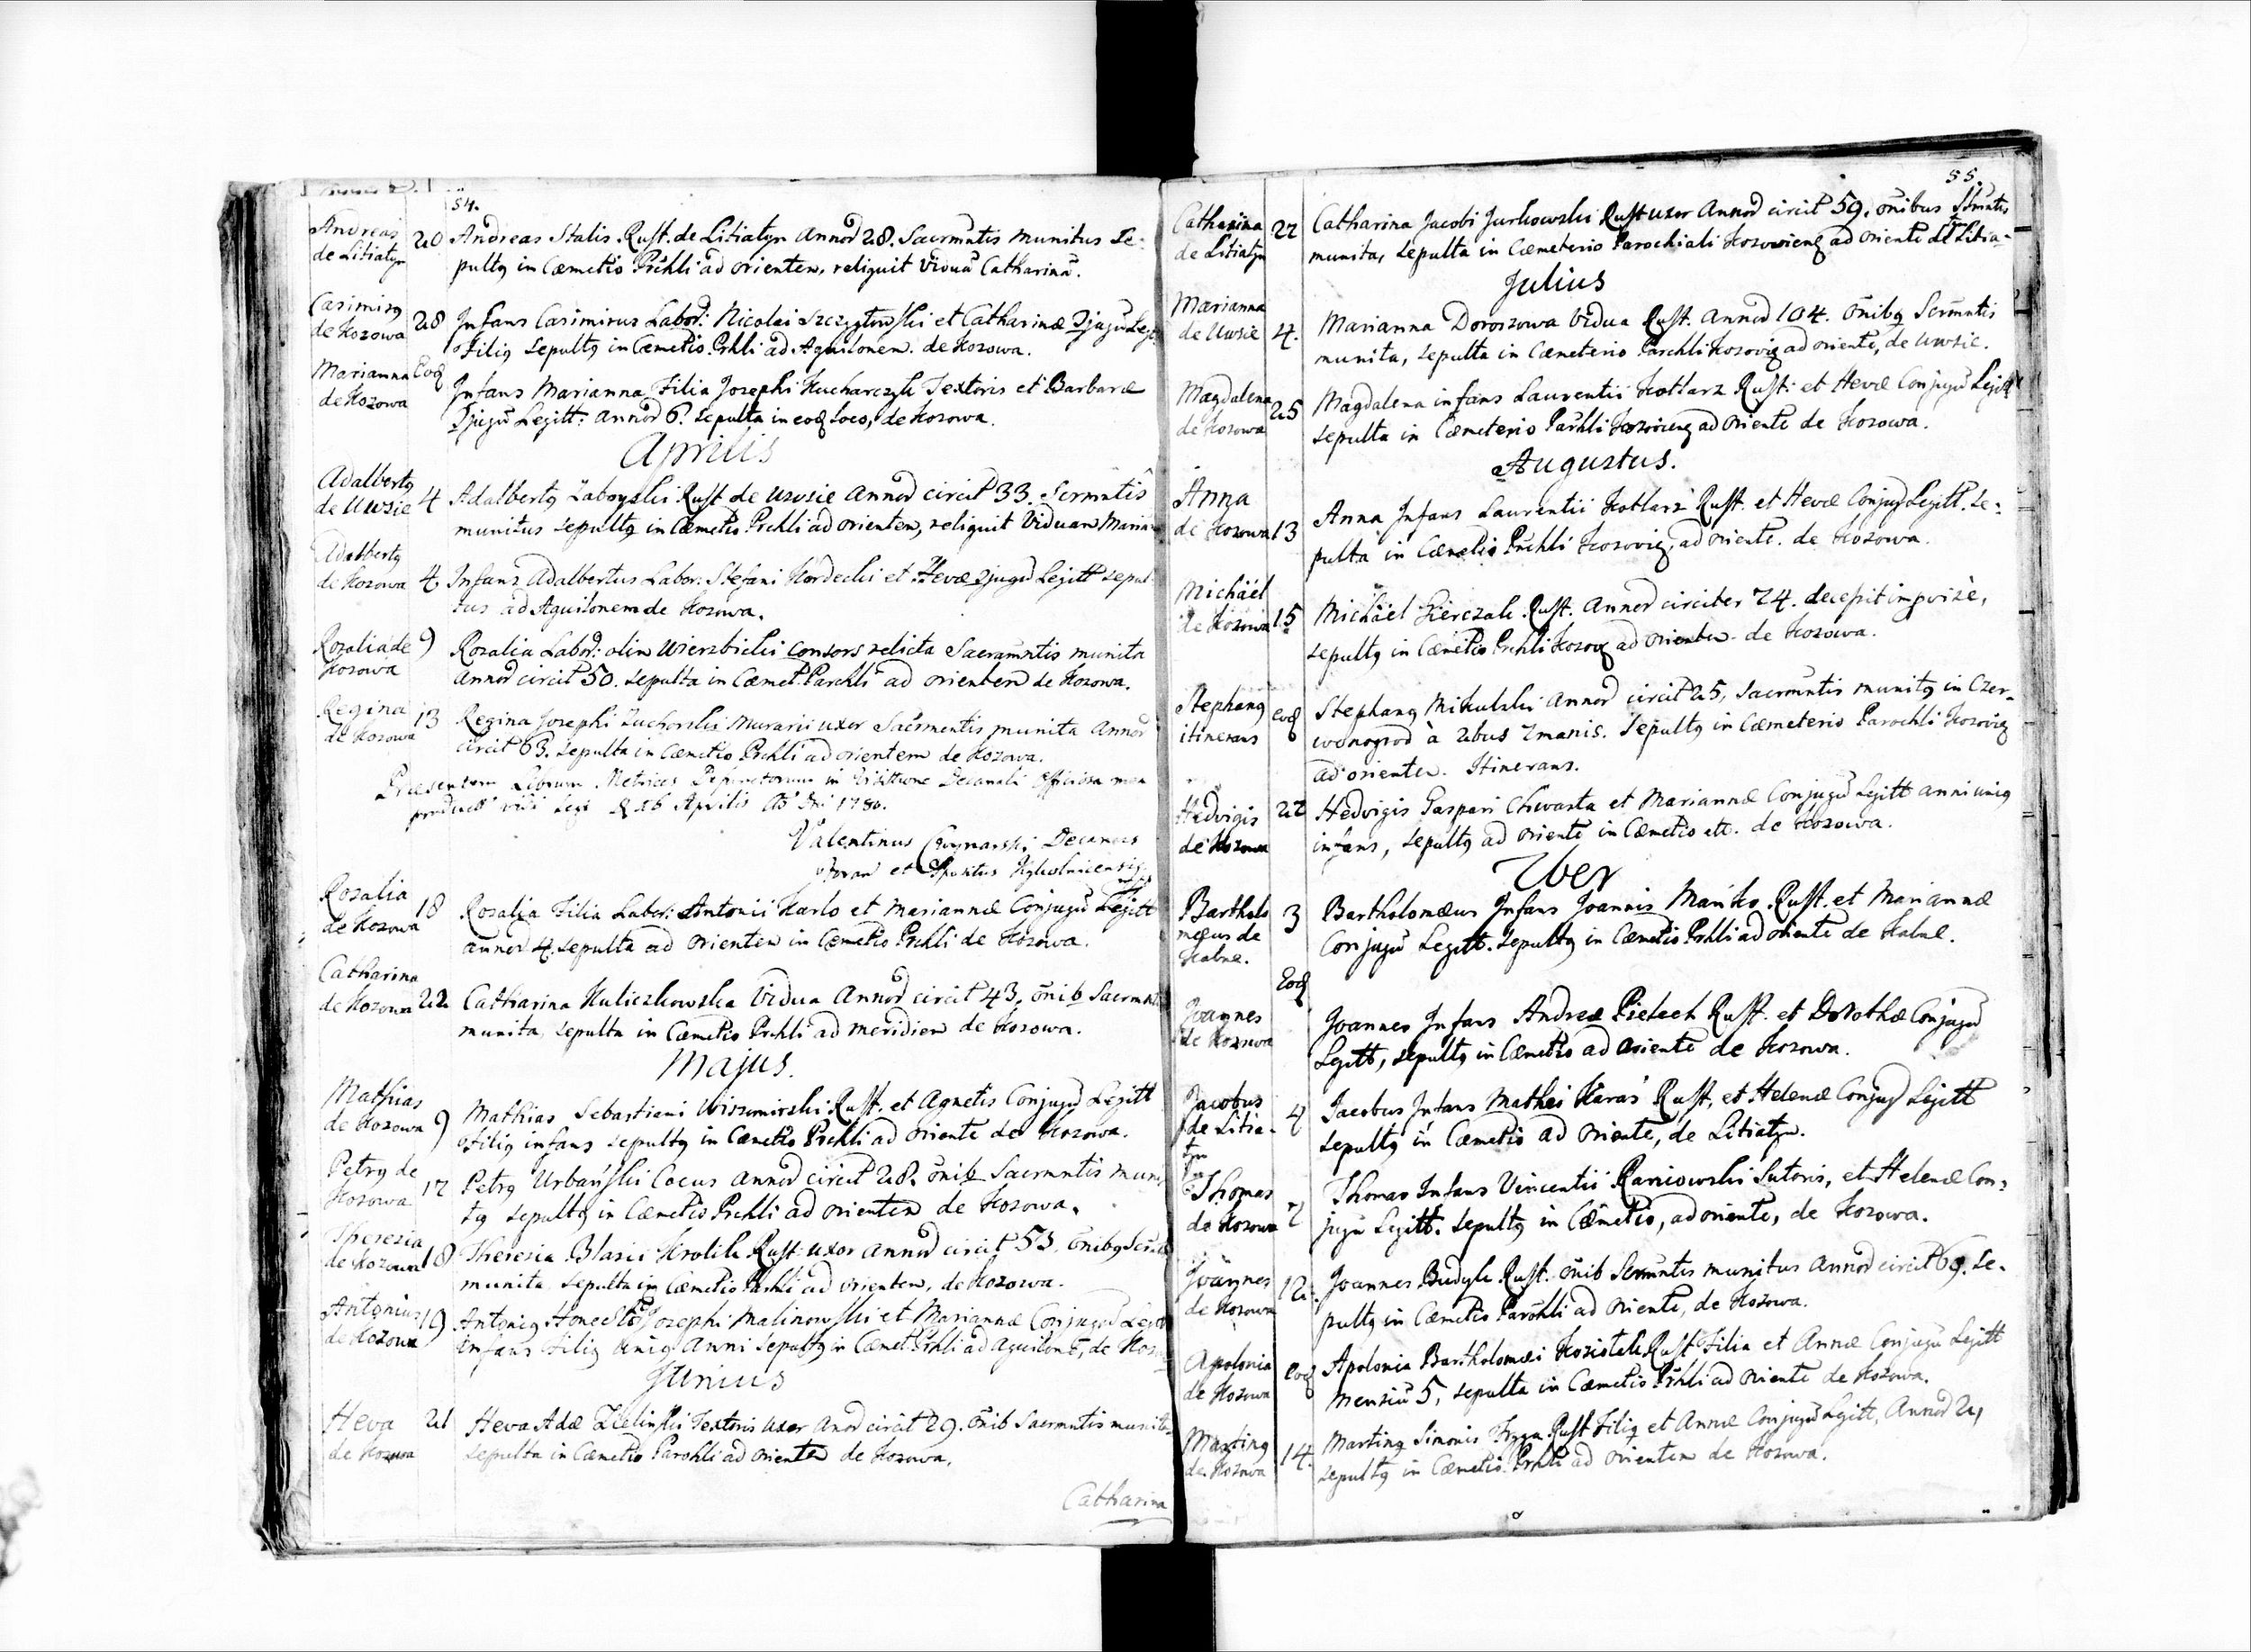 54.
Andreas
de Litiatyn
20
Andreas Stalis Rust. de Litiatyn Annor 28. Sacrmntis munitus Se-
pultg in Cæmetio Prchli ad orientem, reliquit Viduā Catharinā.
Casimirg
de Kozowa
28
Infans Casimirus Labor: Nicolai Szczygłowski et Catharinæ Ɔjugū Legit
Filig Sepultg in Cæmetio Prhli ad Aquilonem. de Kozowa.
Marianna
de Kozowa
Eod
Infans Marianna Filia Josephi Kucharczyk Textoris et Barbaræ
Ɔjugū Legitt: annor 6. Sepulta in eod loco, de Kozowa.
Aprilis
Adalbertg
de Uwsie
4
Adalbertg Zaboyski Rust de Uwsie Annor circit 33. Scrmntis
munitus sepultg in Cæmetio Prchli ad orientem, reliquit Viduam Marian
Adalbertg
de Kozowa
4
Infans Adalbertus Labor: Stefani Kordecki et Hevæ Ɔjugū Legitt sepul-
tus ad Aquilonem de Kozowa.
Rozalia de
Kozowa
9
Rozalia Labor: olim Wierzbicki consors relicta Sacramntis munita
Annor circit 50. sepulta in Cæmet. Parchli ad orientem de Kozowa.
Regina
de Kozowa
13
Regina Josephi Zuchorski Murarii uxor Sacrmentis munita Annor
circit 63. sepulta in Cæmetio Prchli ad orientem de Kozowa.
Præsentem Librum Metrices Defunctorum in Visittione Decanali Officiosa mea
product vidi legi d 16 Aprilis Ao Dni 1786.
Valentinus Decanus
et
Rozalia
de Kozowa
18
Rozalia Filia Labor: Antonii Karlo et Mariannæ Conjugū Legitt
annor 4. sepulta ad orientem in Cæmetio Prchli de Kozowa.
Catharina
de Kozowa
22
Catharina Kuliczkowska Vidua Annor circit 43, ōnib Sacrmnt
munita, sepulta in Cæmetio Prchli ad meridiem de Kozowa.
Majus.
Mathias
de Kozowa
9
Mathias Sebastiani Wiszmirski Rust. et Agnetis Conjugū Legitt
Filig infans sepultg in Cæmetio Prchli ad oriente de Kozowa.
Petrg de
Kozowa
17
Petrg Urbański Cocus annor circit 28. ōnib Sacrmntis muni
tg sepultg in Cæmetio Prchli ad orientem de Kozowa.
Theresia
de Kozowa
18
Theresia Blasii Krolik Rust: uxor annor circit 53. ōnibg
munita sepulta in Cæmetio Parhli ad orientem, de Kozowa.
Antonius
de Kozowa
19
Antonig Honesto Josephi Malinowski et Mariannæ Conjugū Legitt
infans Filig unig Anni sepultg in Cæmet. Prhli ad Aquilonē, de Koz
Junius
Heva
de Kozowa
21
Heva Adæ Zielinski Textoris uxor Anor circit 29. ōnib Sacrmntis munita
sepulta in Cæmetio Parohli ad orientem de Kozowa.
Catharina
55.
Catharina
de Litiatyn
22
Catharina Jacobi Jurkowski Rust uxor Annor circit 59, ōnibus Scrmntis
munita, sepulta in Cæmeterio Parochiali Kozowieng ad oriente de Litia-
Julius
Marianna
de Uwsie
4.
Marianna Doroszowa Vidua Rust. Annor 104. ōnibg Scrmntis
munita, sepulta in Cæmeterio Parchli Kozovig ad oriente, de Uwsie.
Magdalena
de Kozowa
25
Magdalena infans Laurentii Kotlarz Rust: et Hevæ Conjugū Legitt
sepulta in Cæmeterio Parhli Kozovieng ad oriente de Kozowa.
Augustus.
Anna
de Kozowa
13
Anna Infans Laurentii Kotlarz Rust. et Hevæ Conjug Legitt. Se-
pulta in Cæmetio Prchli Kozovig, ad oriente. de Kozowa.
Michäel
de Kozowa
15
Michäel Kierczak Rust. Annor circiter 74. decessit improvisè,
sepultg in Cæmetio Prchli Kozovg ad orientem de Kozowa.
Stephang
itinerans
eod
Stephang Mikulski Annor circit 25, Sacrmntis munitg in Czer-
wonogrod à 2bus 7manis. Sepultg in Cæmeterio Parochli Kozovig
ad orientem. Itinerans.
Hedvigis
de Kozowa
22
Hedvigis Gaspari Chwasta et Mariannæ Conjugū Legitt anni unig
infans, sepultg ad oriente in Cæmetio etc. de Kozowa.
7ber
Bartholo
mæus de
Kalne.
3
Bartholomæus Infans Joannis Mańko Rust. et Mariannæ
Conjugū Legitt. sepultg in Cæmetio Prhli ad oriente de Kalne.
Eod
Joannes
de Kozowa
Joannes Infans Andreæ Pielech Rust. et Dorothæ Conjugū
Legitt, sepultg in Cæmetio ad oriente de Kozowa.
Jacobus
de Litia-
tyn
4
Jacobus Infans Mathei Karaś Rust, et Helenæ Conjug Legitt
sepultg in Cæmetio ad oriente, de Litiatyn.
Thomas
de Kozowa
7
Thomas Infans Vincentii Raniowski Sutoris, et Helenæ Con-
jugū Legitt. sepultg in Cæmetio, ad oriente, de Kozowa.
Joannes
de Kozowa
12.
Joannes Budyk Rust. ōnib Scrmntis munitus Annor circit 69. Se-
pultg in Cæmetio Parohli ad oriente, de Kozowa.
Apolonia
de Kozowa
eod
Apolonia Bartholomæi Koziołek Rust Filia et Annæ Conjugū Legitt
Mensiū 5, sepulta in Cæmetio Prhli ad oriente de Kozowa.
Marting
de Kozowa
14.
Marting Simonis Rust Filig et Annæ Conjugū Legitt, Annor 2,
sepultg in Cæmetio Prhli ad orientem de Kozowa.